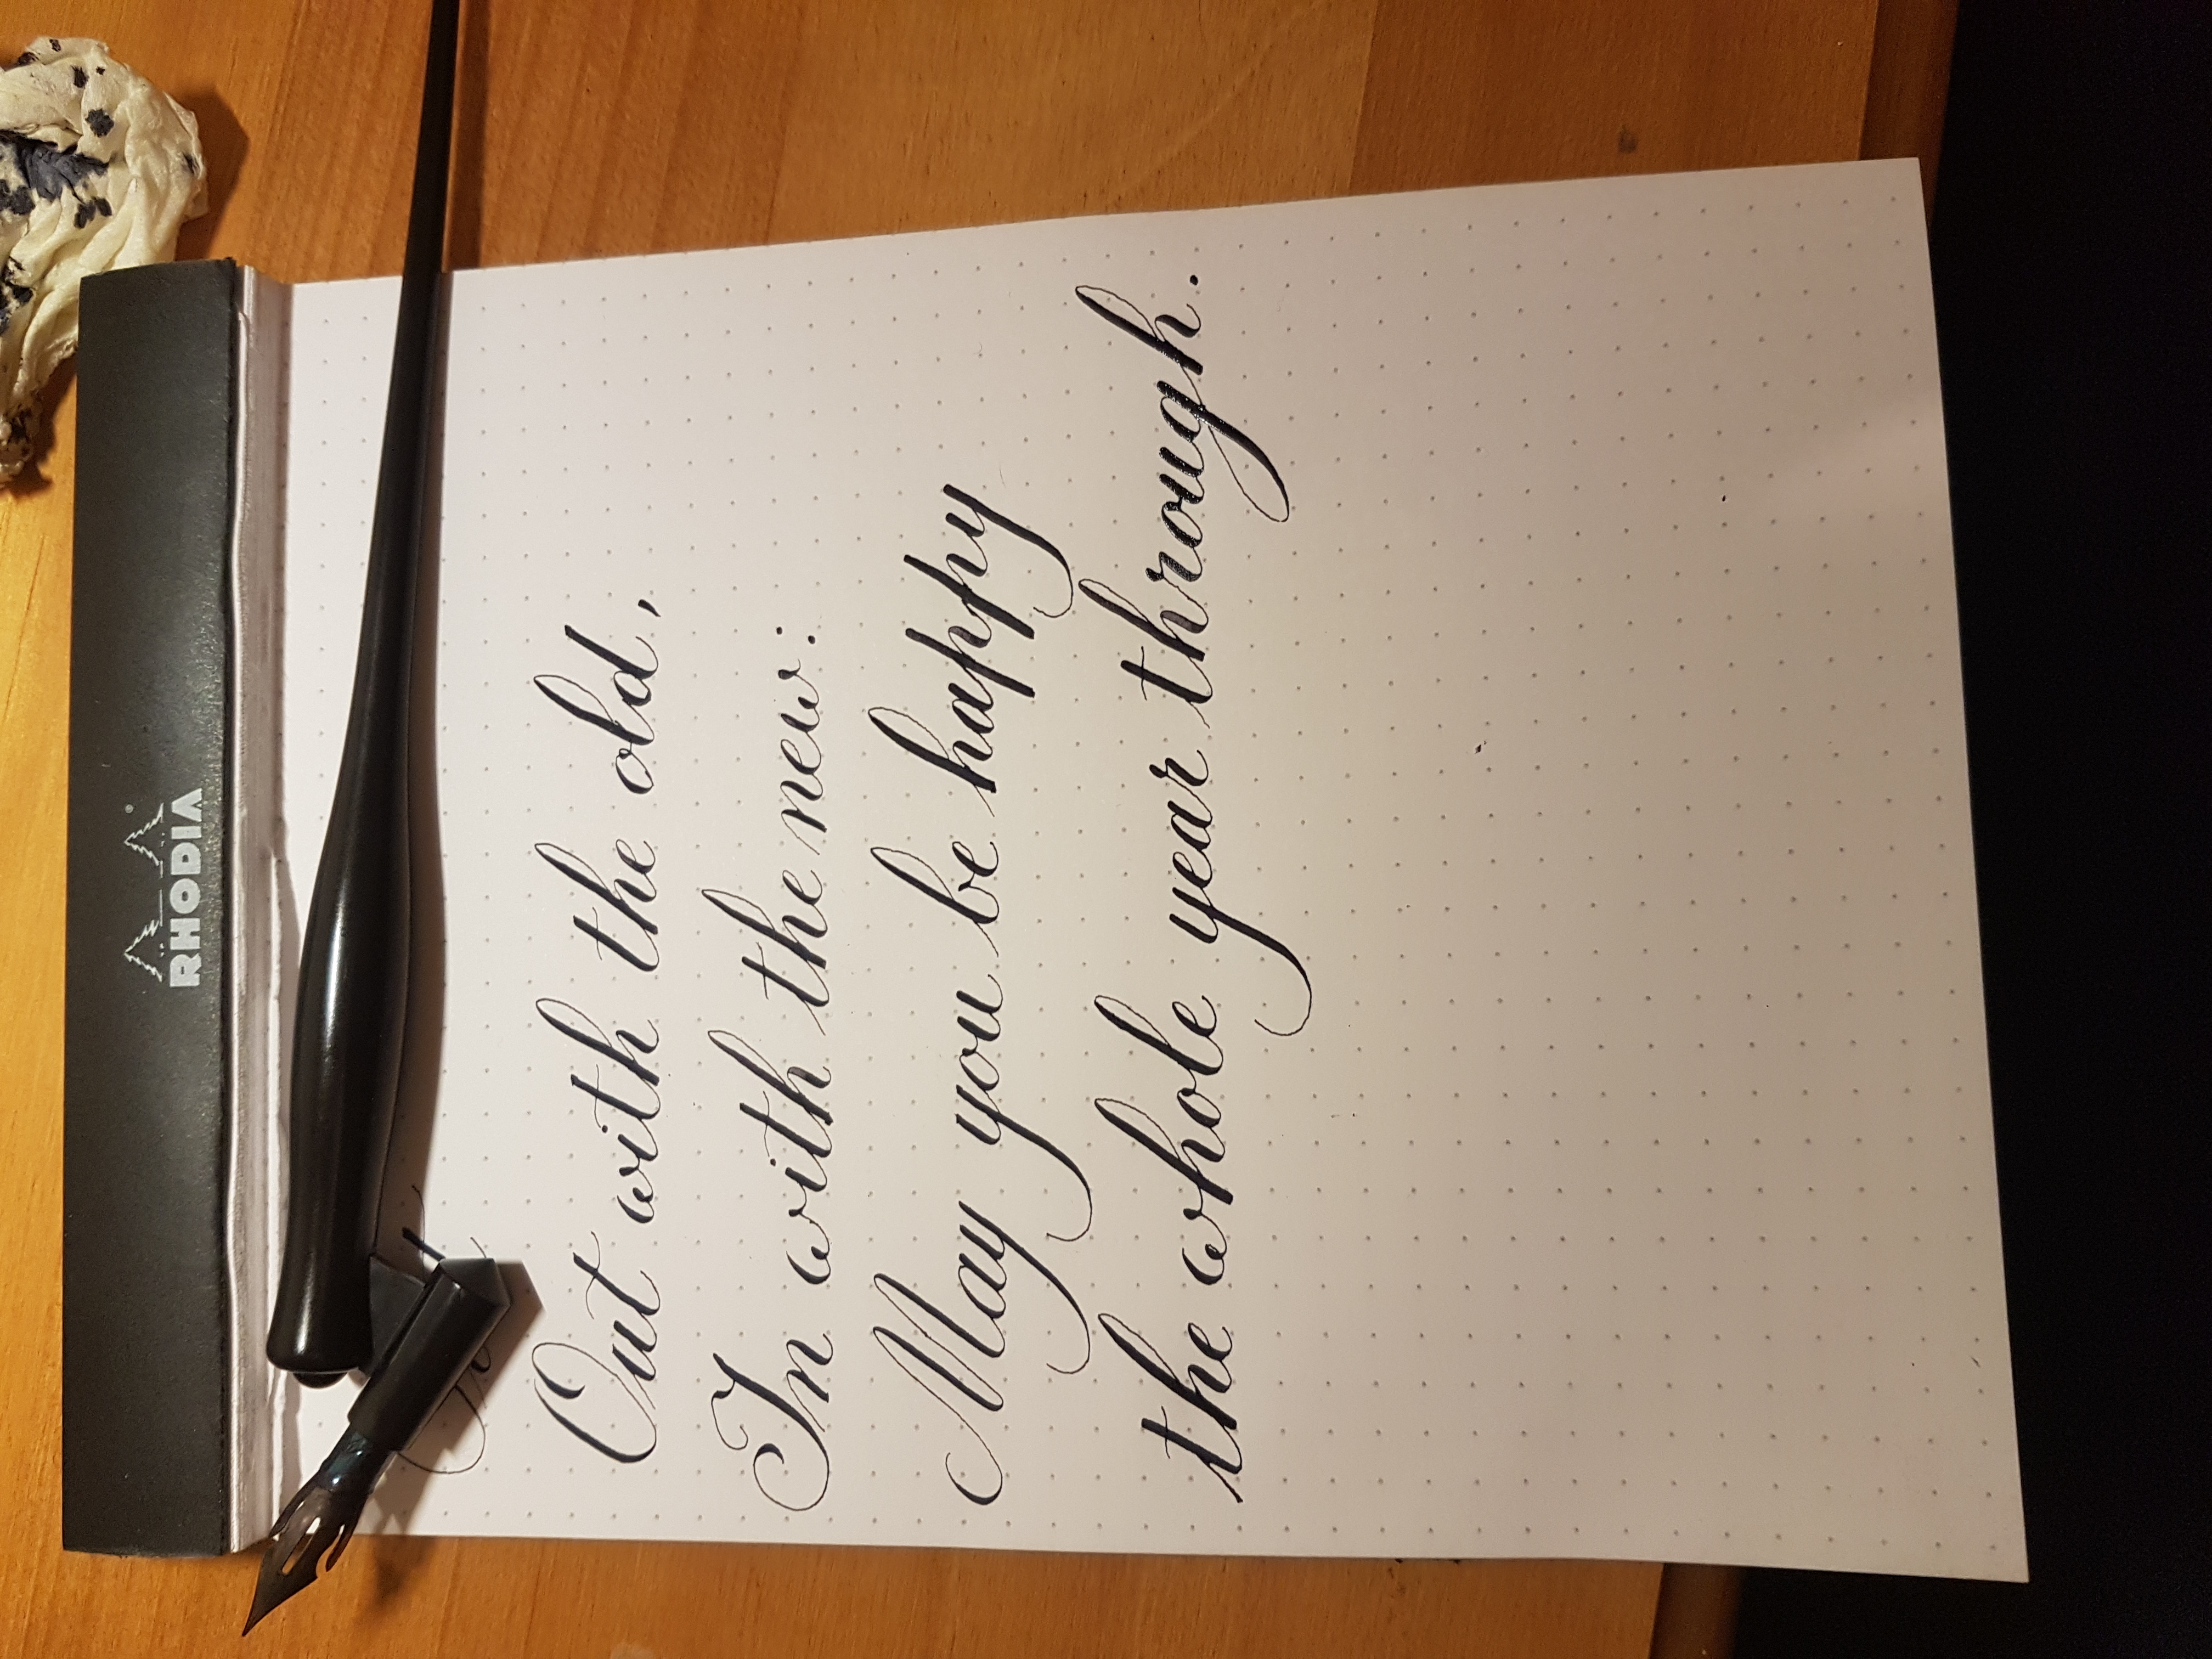 RHODIA
Out with the old,
In with the new:
May you be happy
the whole year through.